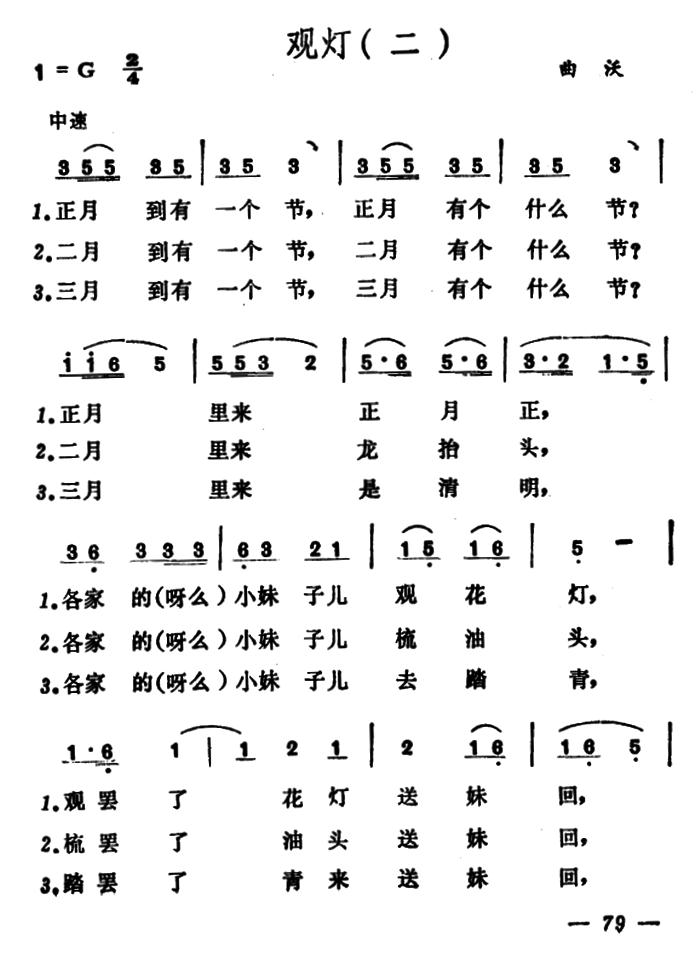 观灯(二)
1=G 2/4 曲沃
中速
3 5 5 3 5 | 3 5 3 | 3 5 5 3 5 | 3 5 3 |
1.正月 到有 一个 节, 正月 有个 什么 节?
2.二月 到有 一个 节, 二月 有个 什么 节?
3.三月 到有 一个 节, 三月 有个 什么 节?
i i 6 5 | 5 5 3 2 | 5·6 5·6 | 3·2 1·5 |
1.正月 里来 正 月 正,
2.二月 里来 龙 抬 头,
3.三月 里来 是 清 明,
3 6 3 3 3 | 6 3 2 1 | 1 5 1 6 | 5 - |
1.各家 的(呀么)小妹 子儿 观 花 灯,
2.各家 的(呀么)小妹 子儿 梳 油 头,
3.各家 的(呀么)小妹 子儿 去 踏 青,
1·6 1 | 1 2 1 | 2 1 6 | 1 6 5 |
1.观 罢 了 花 灯 送 妹 回,
2.梳 罢 了 油 头 送 妹 回,
3.踏 罢 了 青 来 送 妹 回,
— 79 —